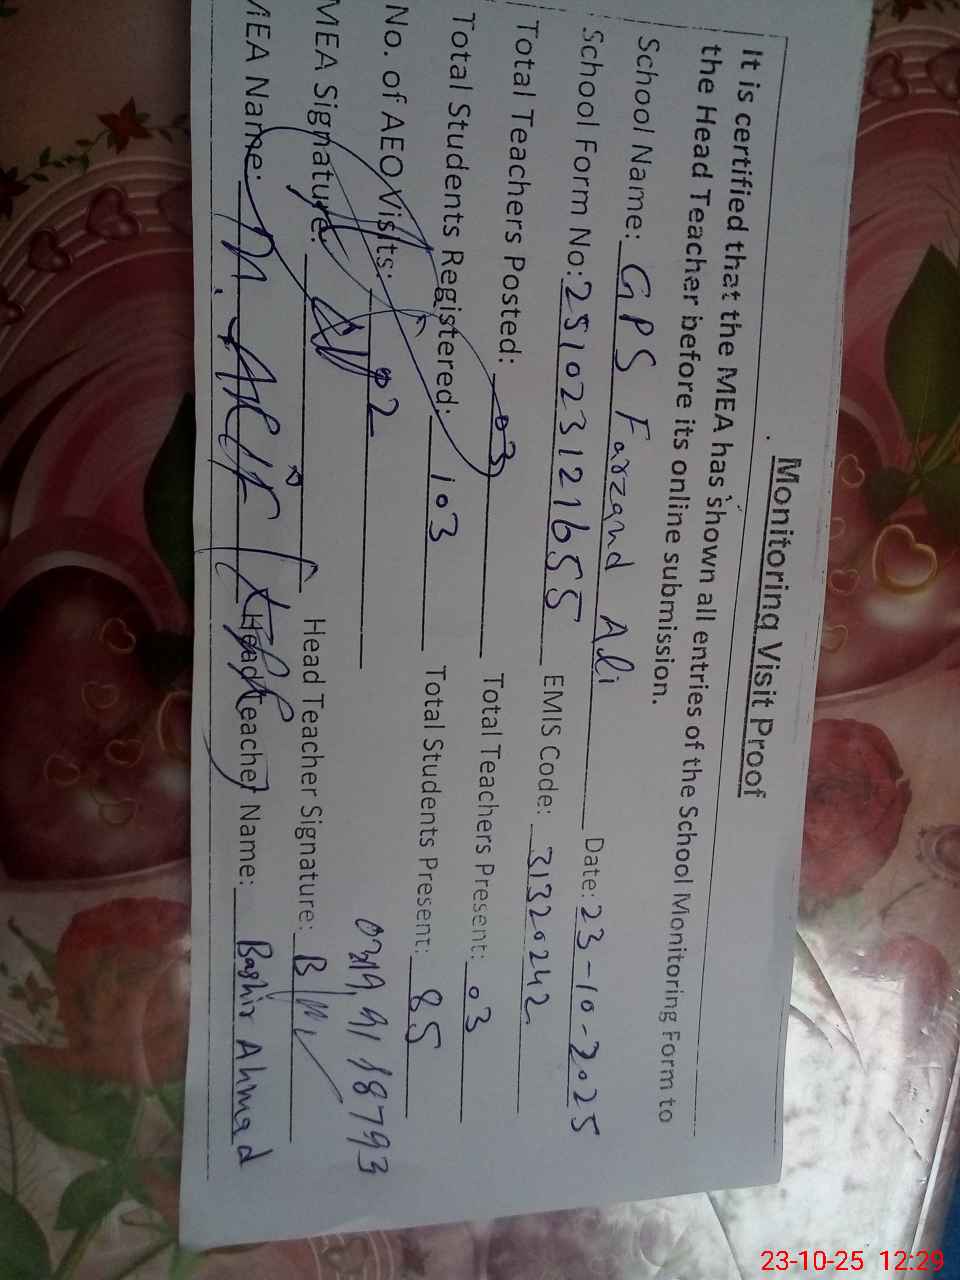 Monitoring Visit Proof
It is certified that the MEA has shown all entries of the School Monitoring Form to
the Head Teacher before its online submission.
School Name: GPS Farzand Ali Date: 23-10-2025
School Form No: 251023121655 EMIS Code: 31320242
Total Teachers Posted: 03 Total Teachers Present: 03
Total Students Registered: 103 Total Students Present: 85
No. of AEO Visits: 02
MEA Signature: Head Teacher Signature:
MEA Name: M. Head Teacher Name: Bashir Ahmad
23-10-25 12:29